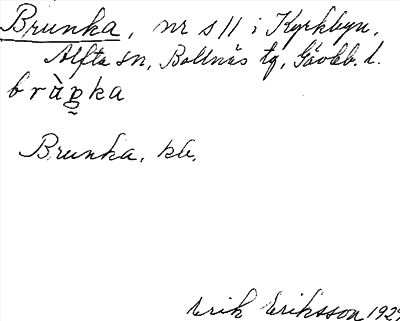 Brunka, nr s 11 i Kyrkbyn,
Alfta sn, Bollnäs tg, Gävleb. l.
Brunka, kb.
Erik Eriksson 192